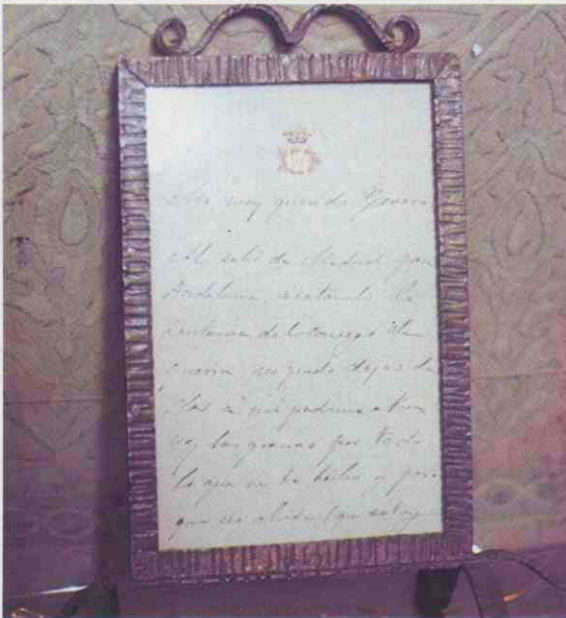 Mi muy querido General
Al salir de Madrid para
Andalucia, acatando la
sentencia del Consejo de
Guerra no puedo dejar de
dar à mi padrino otra
vez las gracias por todo
lo que me ha hecho y para
que no olvide que estoy